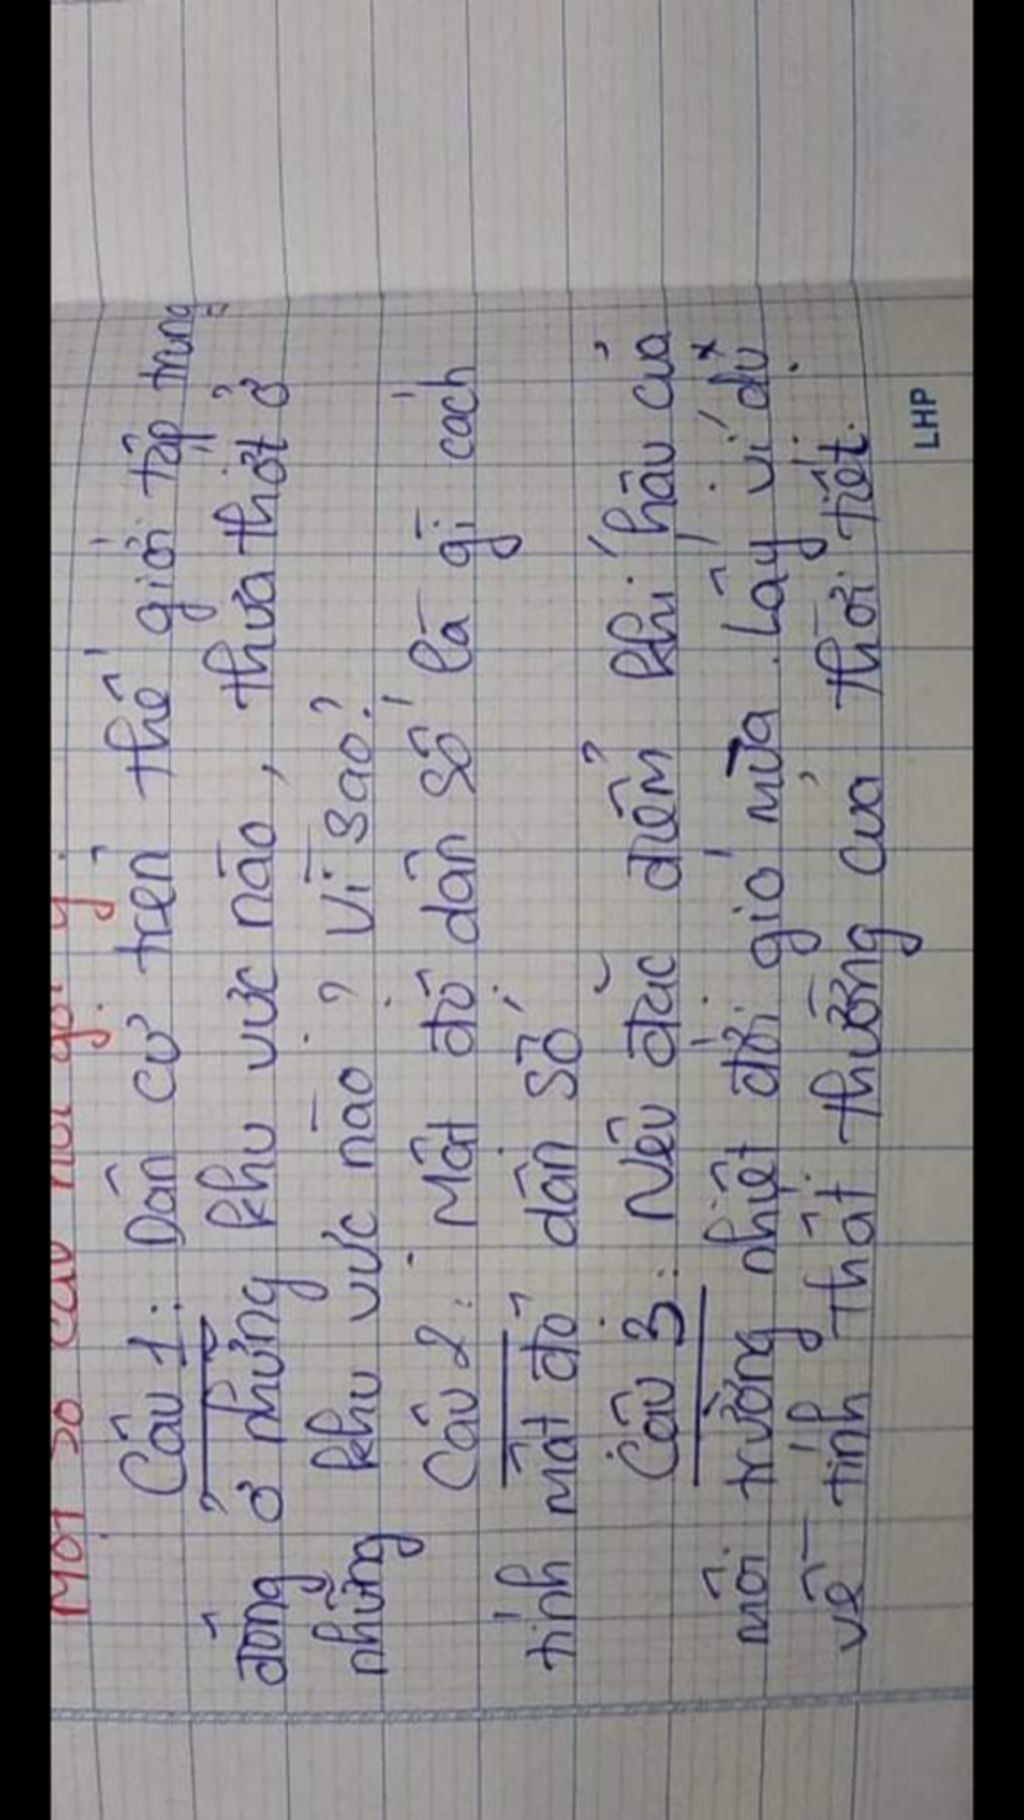 Một số câu hỏi gợi ý:
Câu 1: Dân cư trên thế giới tập trung
đông ở những khu vực nào, thưa thớt ở
những khu vực nào? Vì sao?
Câu 2: Mật độ dân số là gì cách
tính mật độ dân số
Câu 3: Nêu đặc điểm khí hậu của
môi trường nhiệt đới gió mùa. Lấy ví dụ
về tính thất thường của thời tiết.
LHP